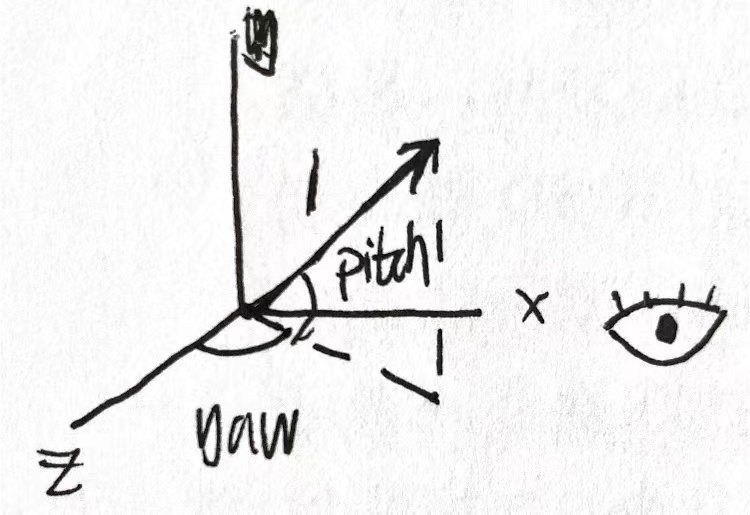 y
1
pitch
x
yaw
z